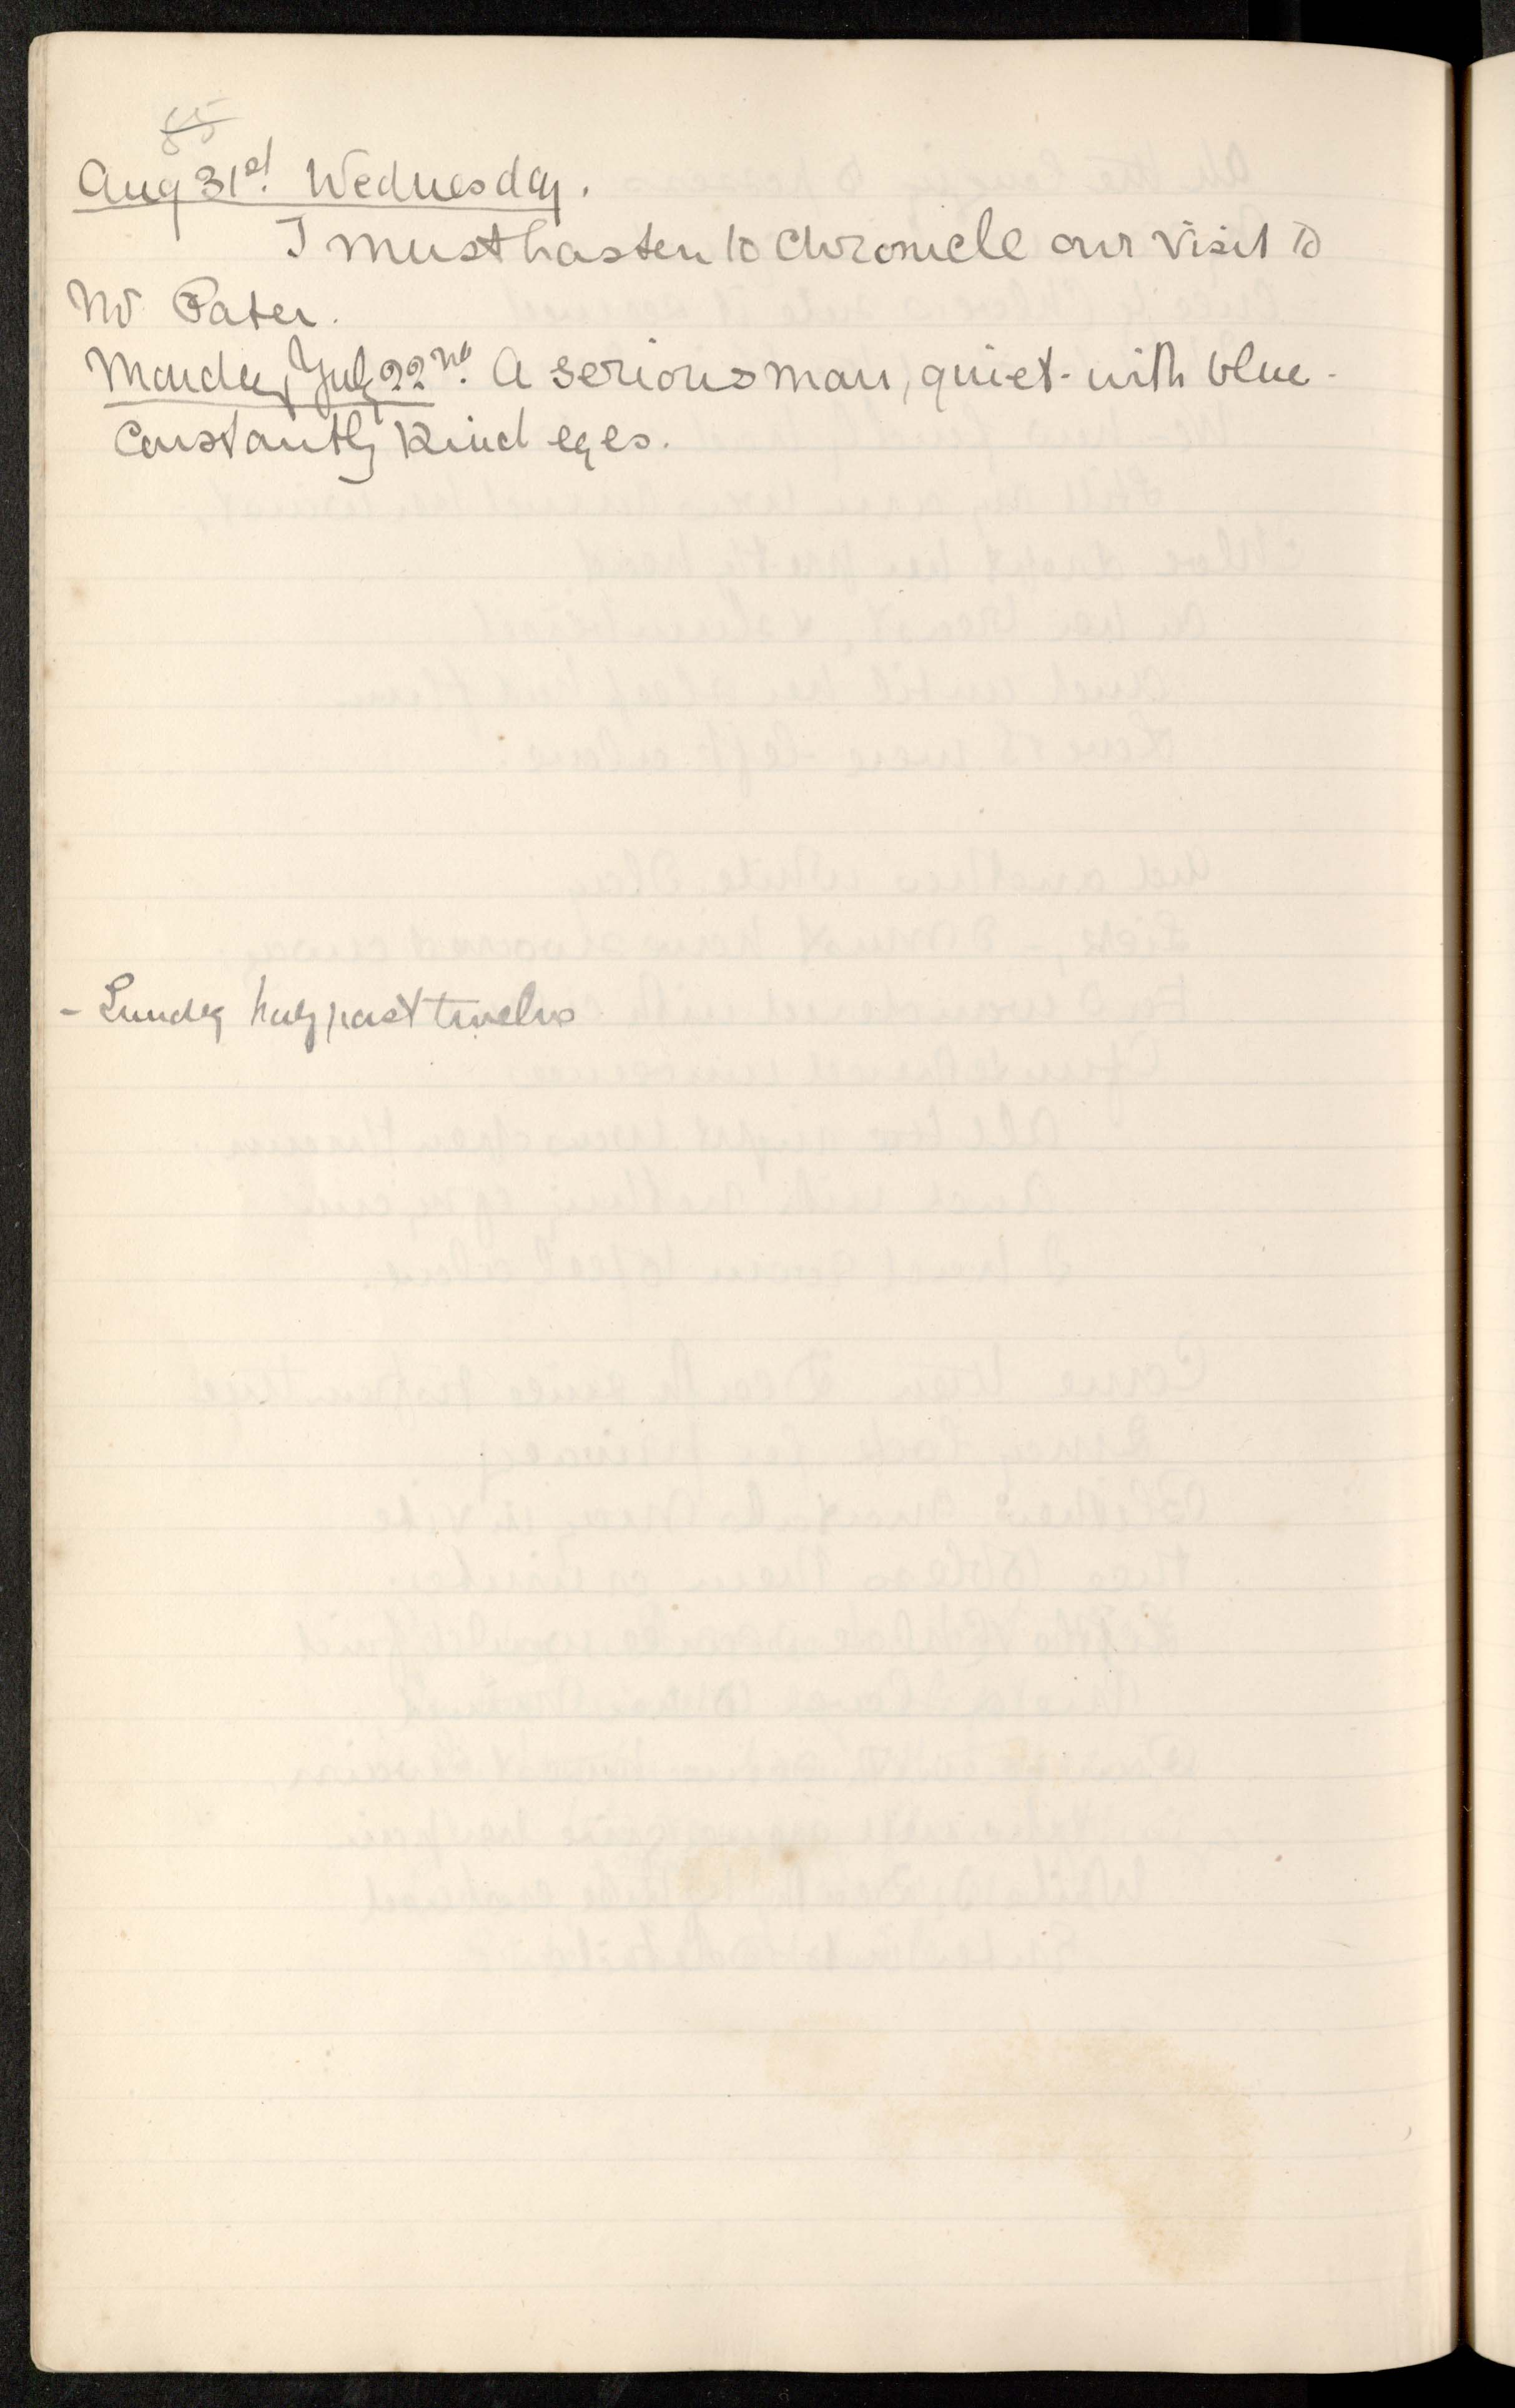 85
Aug 31st. Wednesday.
I must hasten to chronicle our visit to
Mr Pater.
Monday July 22nd. A serious man, quiet - with blue -
constantly kind eyes.
- Sunday half past twelve